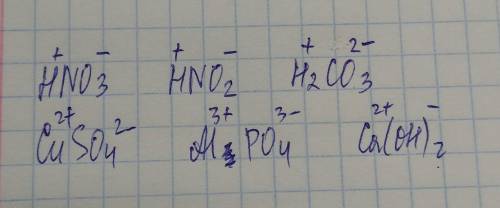 H⁺NO₃⁻ H⁺NO₂⁻ H₂⁺CO₃²⁻
Cu²⁺SO₄²⁻ Al³⁺PO₄³⁻ Ca²⁺(OH)₂⁻